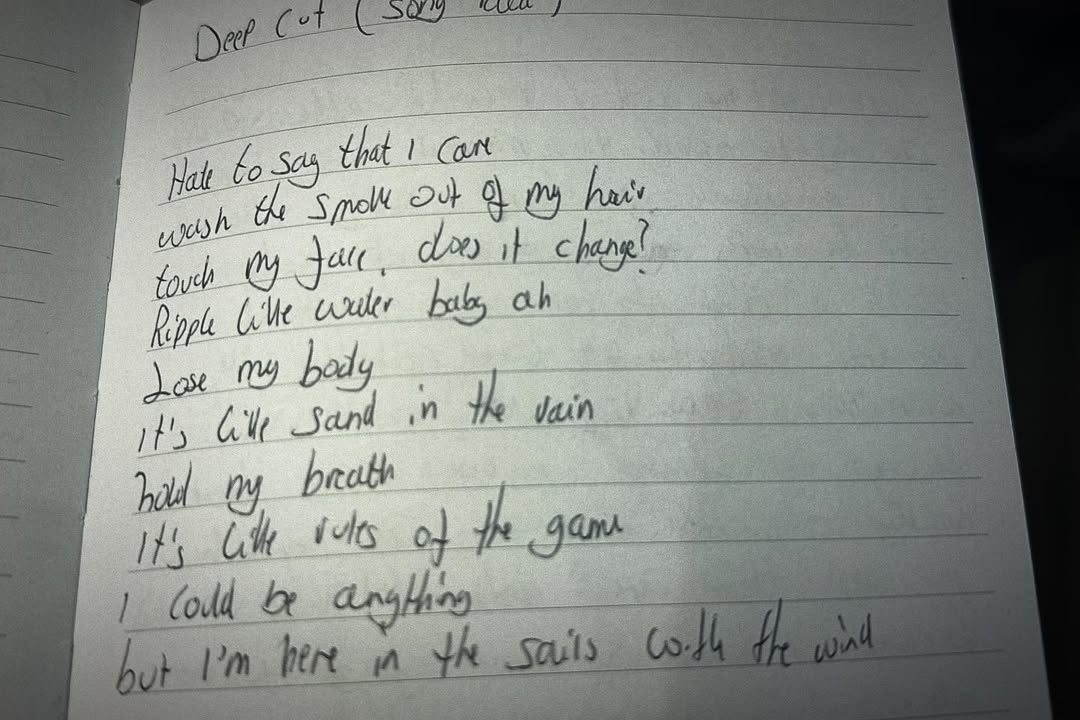 Deep Cut (Song idea)
Hate to say that I care
wash the smoke out of my hair
touch my face, does it change?
Ripple like water baby ah
Lose my body
It's like sand in the vain
hold my breath
It's like rules of the game
I could be anything
but I'm here in the sails with the wind